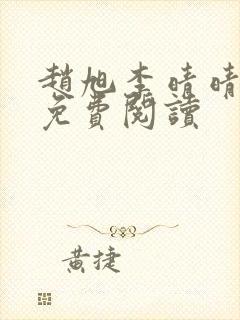 趙旭李晴晴
免費閱讀
黃捷